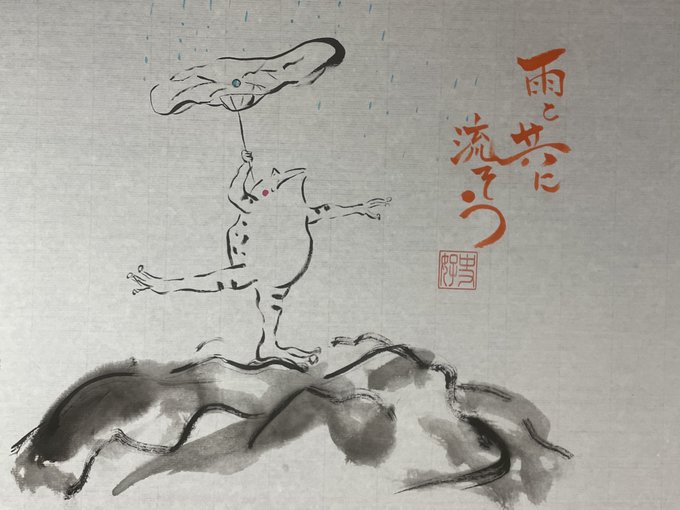 雨と共に
流そう